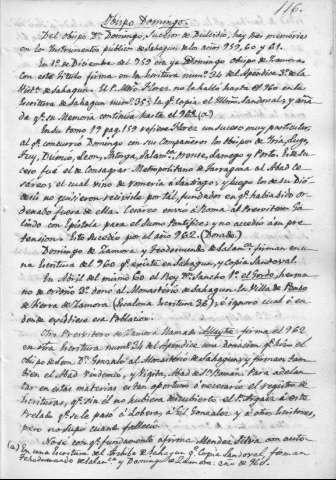 116.
Obispo Domingo.
Del Obispo Dn. Domingo, Sucesor de Dulcidio, hay tres memorias
en los Instrumentos públicos de Sahagun de los años 959, 60 y 61.
En 1º de Diciembre del 959 era ya Domingo Obispo de Zamora
con este titulo firma en la Escritura num. 34 del Apendice 3º de la
Histª de Sahagun. El P. Mro Florez no la halló hasta el 960 en la
Escritura de Sahagun numº 35; la qe copia el Illmo Sandoval; y aña
de qe su Memoria continua hasta el 968. (a)
En su tomo 19 pag. 159 refiere Florez un suceso muy particular,
al qe concurrió Domingo con sus compañeros los Obispos de Iria, Lugo,
Tuy, Dumio, Leon, Astorga, Salamca, Orense, Lamego y Porto. Este Su
ceso fue el de Consagrar Metropolitano de Tarragona al Abad Ce
sareo; el cual vino de romeria a Santiago; y luego los de su Dio
cesis no quisieron recivirlo por tal, fundados en qe habia sido or
denado fuera de ella. Cesareo envió a Roma al Presvitero Ga
lindo con Epistola para el Sumo Pontifice; y no accedió a su pre
tension. Esto sucedió por el año 962. (Donde).
Domingo de Zamora y Teodemundo de Salamca firman en u
na Escritura del 960 qe existe en Sahagun, y copia Sandoval.
En Abril del mismo 60 el Rey Dn. Sancho 1º el Gordo, herma
no de Ordoño 3º donó al Monasterio de Sahagun la Villa de Pensо
de tierra de Zamora (Escalona Escritura 36); e ignoro cual o en
donde existiese esta Poblacion.
Otro Presvitero de Zamora llamado firma el 962
en otra Escritura num. 38 del Apendice una Donacion qe hizo el
Obispo de Leon Dn. Gonzalo al Monasterio de Sahagun; y firman tam
bien el Abad Vindendo, y Vigita, Abad de Sn. Roman. Para adelan
tar en estas materias es tan oportuno o necesario el registro de
escrituras, qe sin el no hubiera descubierto el P. Risco a este
Prelado qe se le pasó a Lobera, a Gil Gonzalez y a otros escritores,
pero no supo cuanto falleció.
No sé con qe fundamento afirma Mendez Silva con autor
(a) En una Escritura del Archivo de Sahagun qe copia Sandoval, firman
Teodemundo de Salamca y Domingo de Zamora: año de 960.